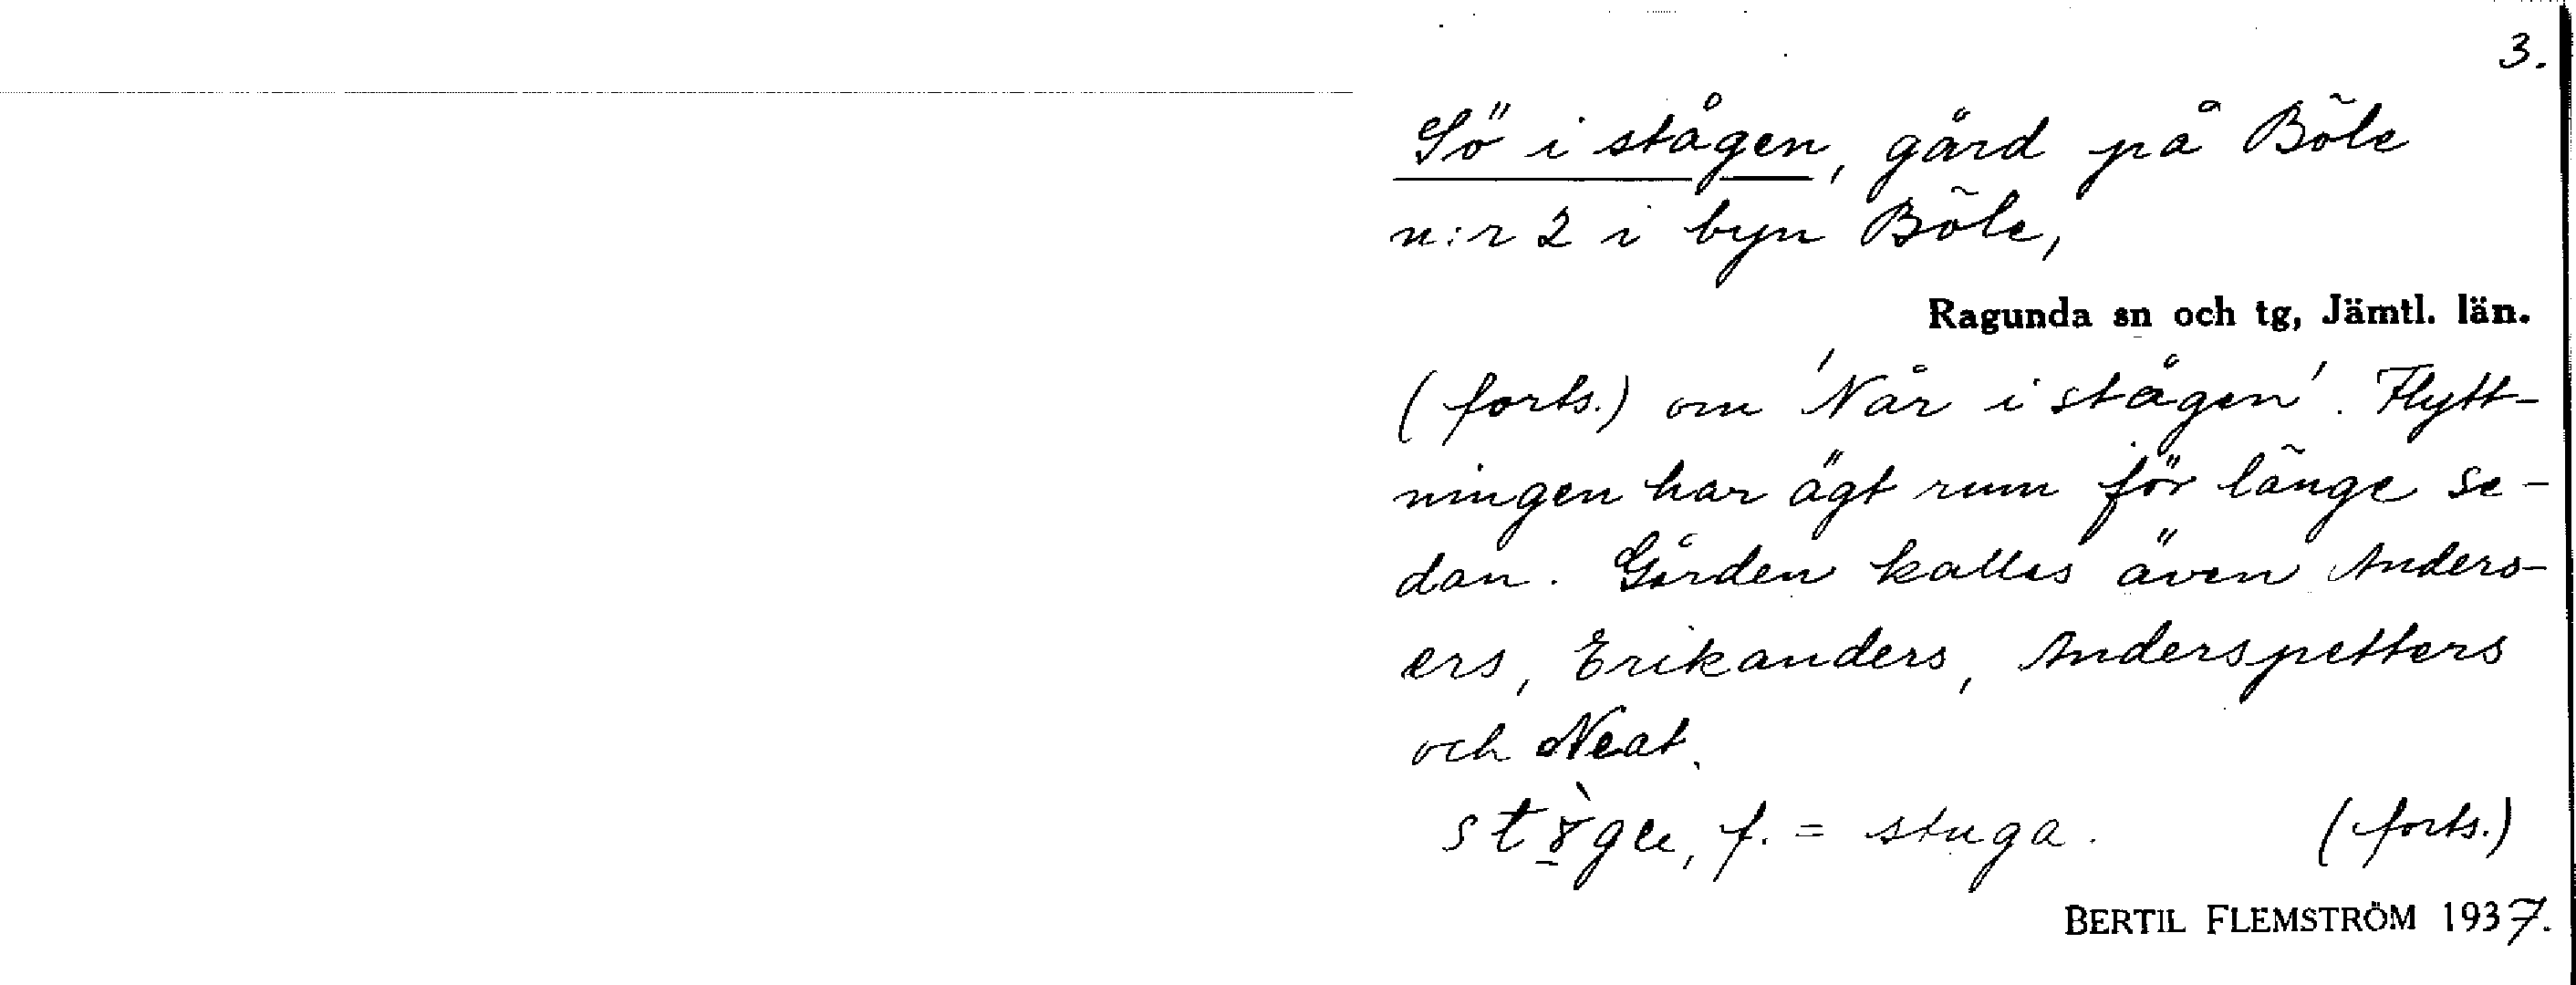 3.
Sö i stågen, gård på Böle
n:r 2 i byn Böle,
Ragunda sn och tg, Jämtl. län.
(forts.) om 'Når i stågen'. Flytt-
ningen har ägt rum för länge se-
dan. Gården kallas även Anders-
ers, Erikanders, Anderspetters
och Neat.
f. = stuga. (forts.)
BERTIL FLEMSTRÖM 1937.